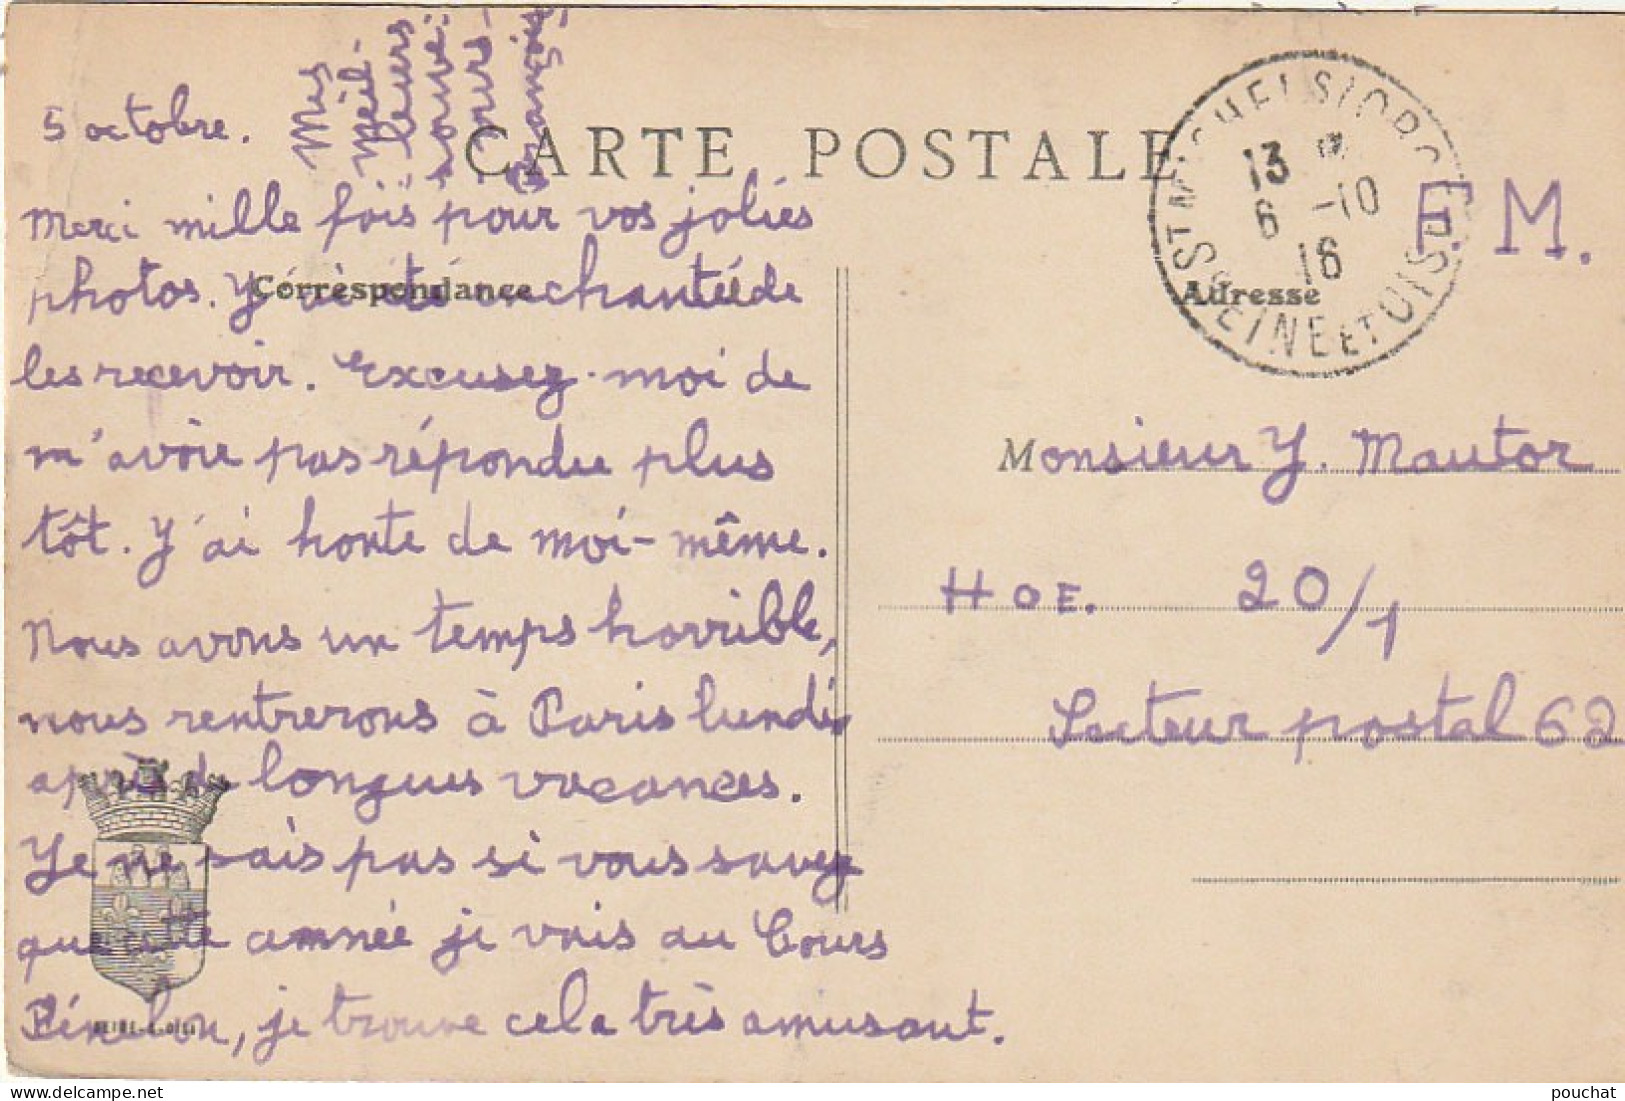 CARTE POSTALE
Correspondance
Adresse
5 octobre.
Merci mille fois pour vos jolies
photos. J'ai été enchantée de
les recevoir. Excusez-moi de
m'avoir pas répondu plus
tôt. J'ai honte de moi-même.
Nous avons un temps horrible,
nous rentrerons à Paris lundi
après de longues vacances.
Je ne sais pas si vous savez
que cette année je vais au Cours
Fénelon, je trouve cela très amusant.
Mes
meil-
leurs
souve-
nirs
Françoise
ST MICHEL S/ ORGE
13
6 -10
16
SEINE ET OISE
F. M.
Monsieur J. Mautor
H O E. 20/1
Secteur postal 62
SEINE-&-OISE
pouchat